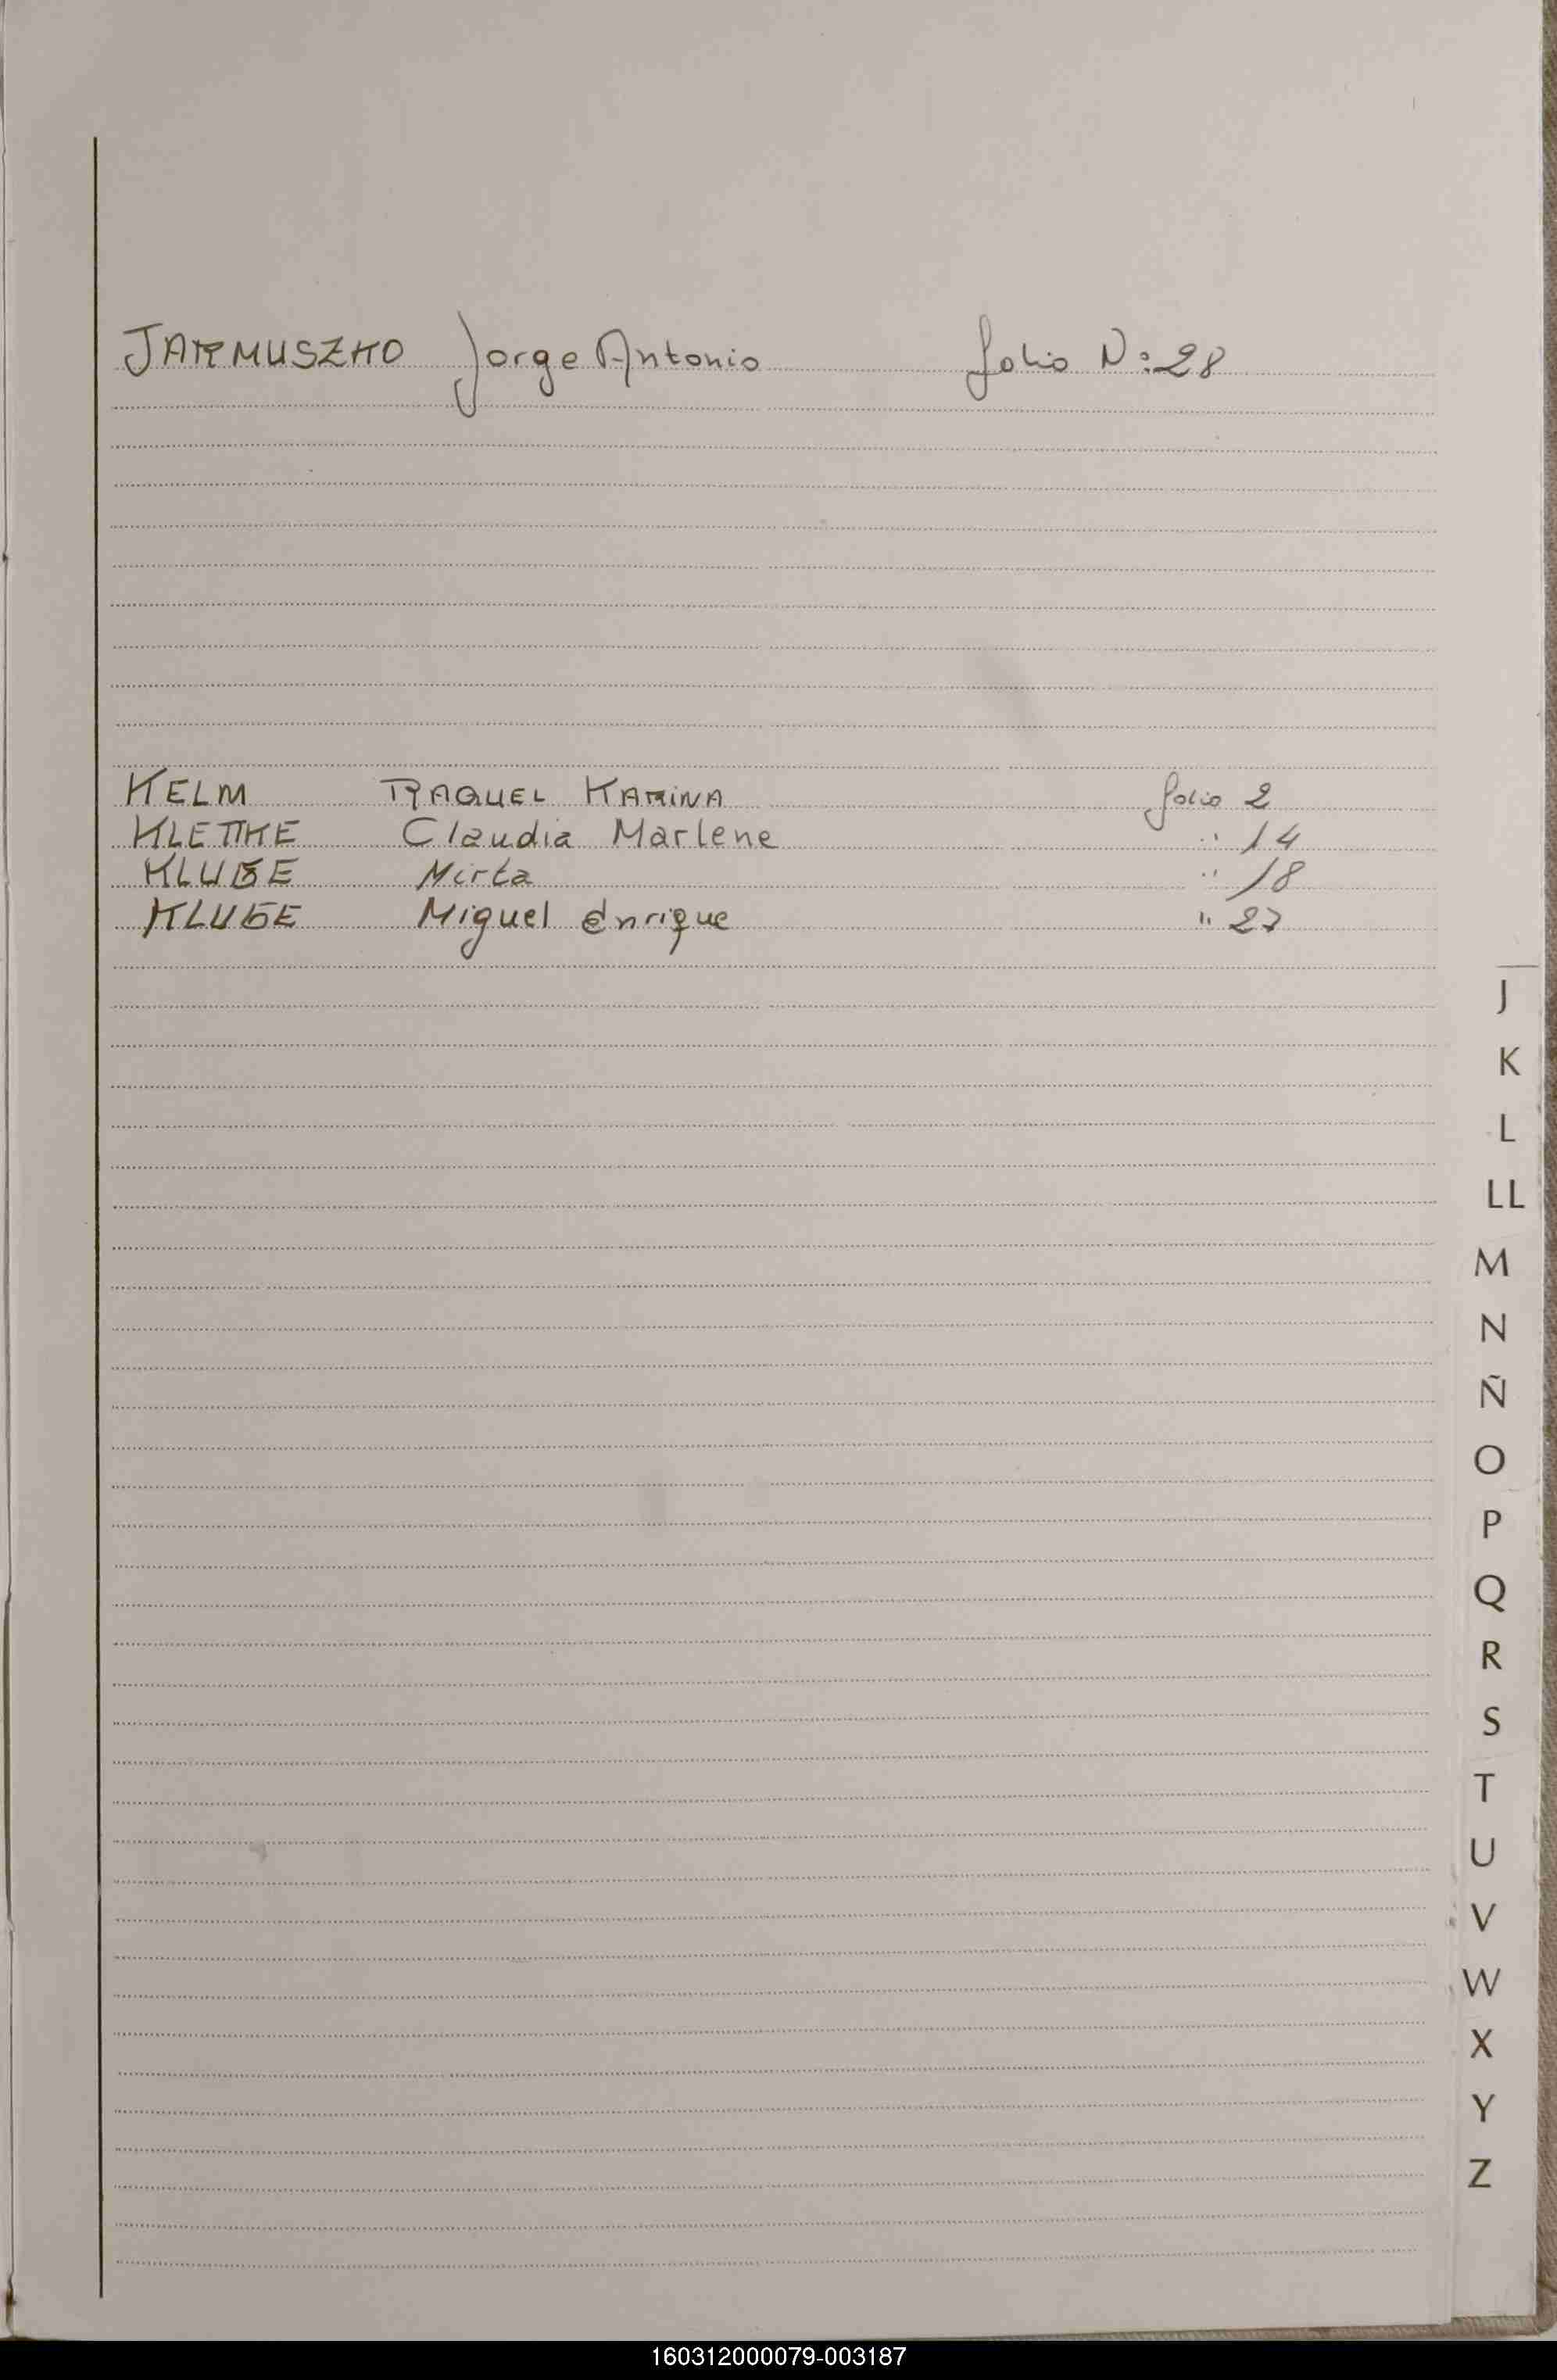 JARMUSZKO Jorge Antonio folio N: 28
KELM RAQUEL KARINA folio 2
KLETTKE Claudia Marlene " 14
KLUGE Mirta " 18
KLUGE Miguel Enrique " 27
J
K
L
LL
M
N
Ñ
O
P
Q
R
S
T
U
V
W
X
Y
Z
160312000079-003187